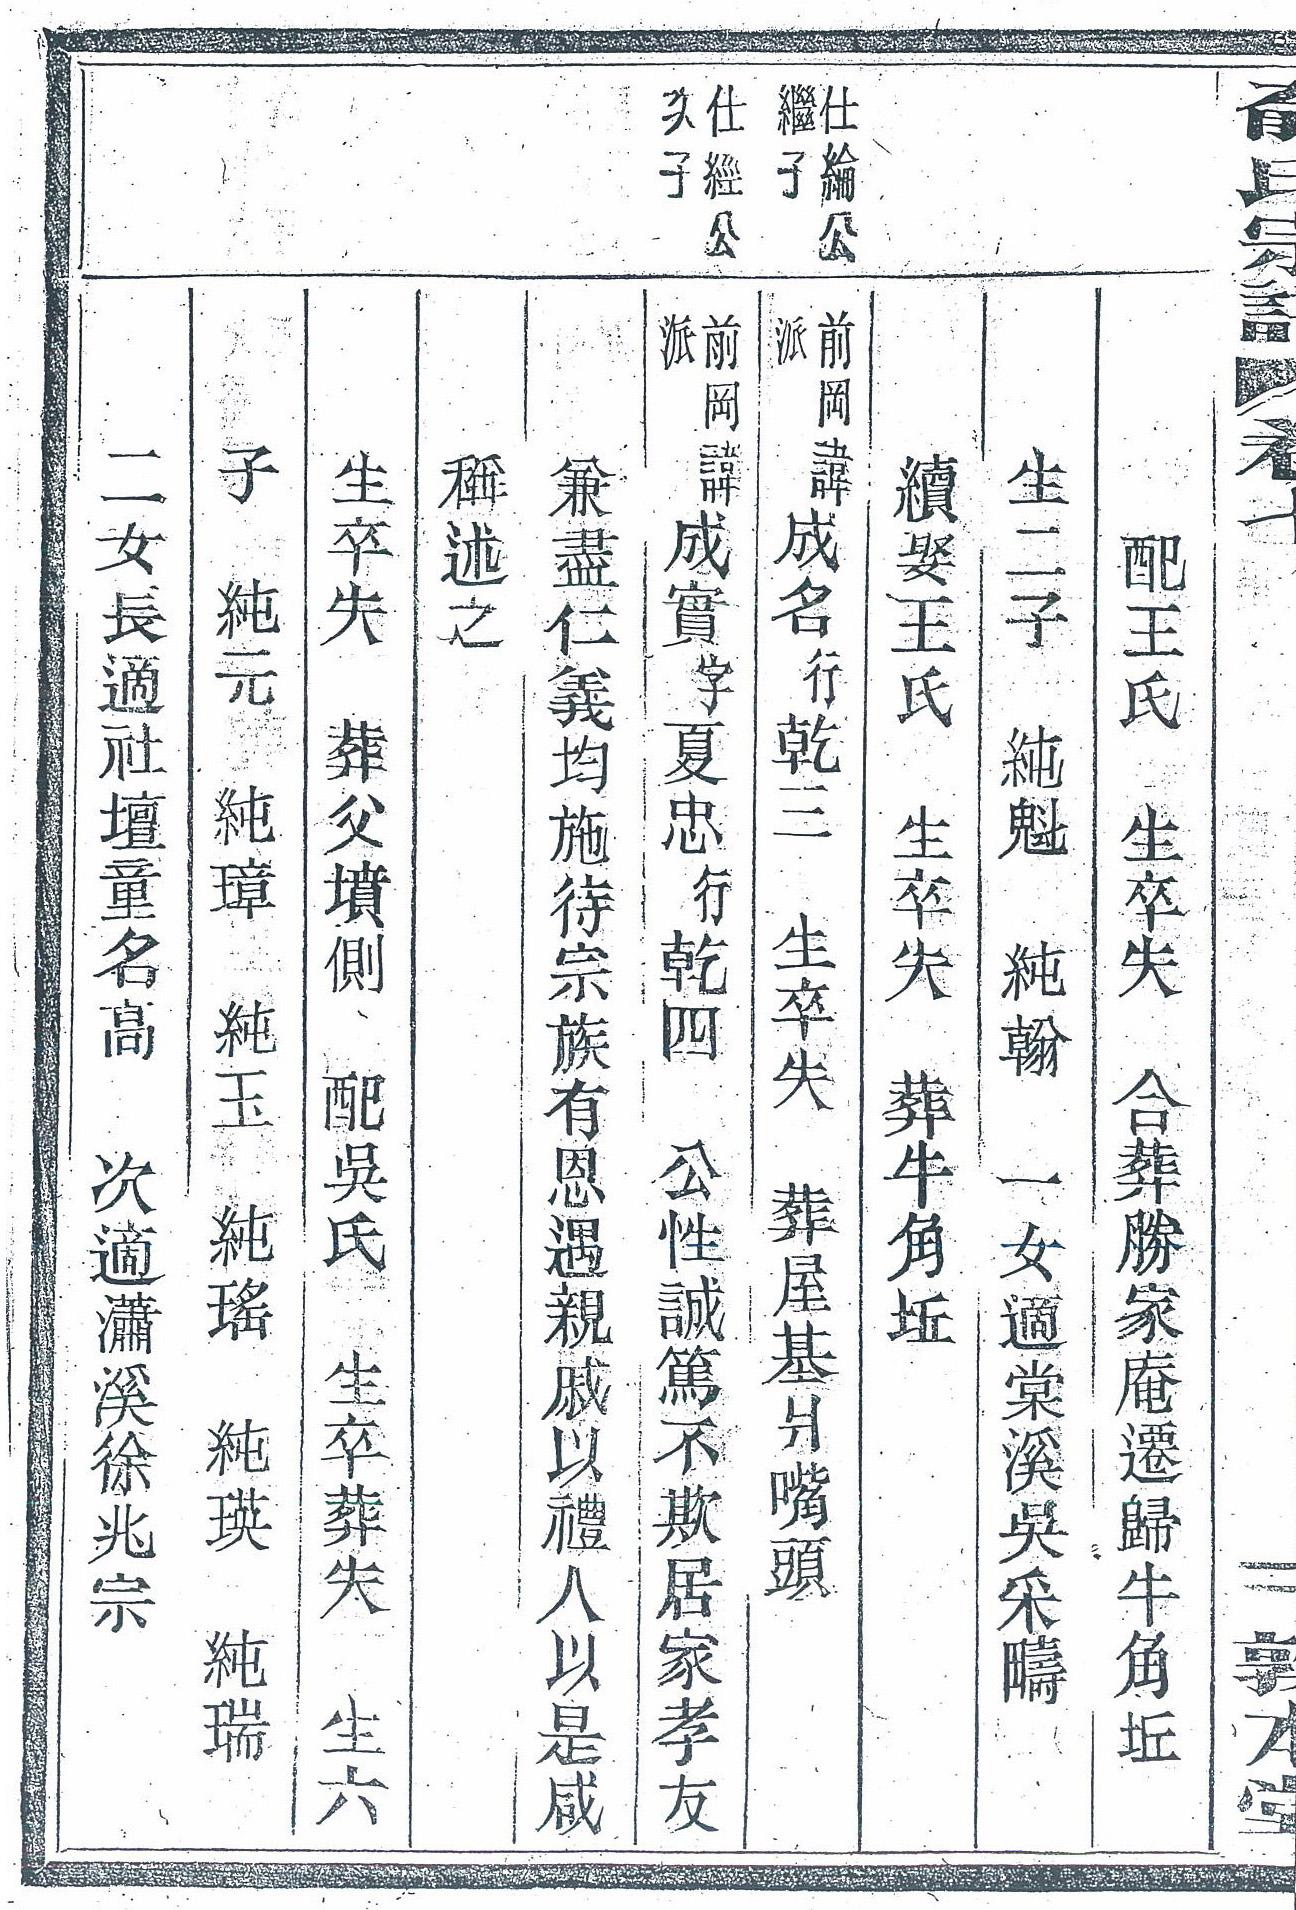 俞氏宗譜 卷七 三 敦本堂
配王氏 生卒失 合葬勝家庵遷歸牛角坵
生二子 純魁 純翰 一女適棠溪吳采疇
續娶王氏 生卒失 葬牛角坵
仕綸公
繼子
前岡派諱成名行乾三 生卒失 葬屋基爿嘴頭
仕經公
次子
前岡派諱成實字夏忠行乾四 公性誠篤不欺居家孝友
兼盡仁義均施待宗族有恩遇親戚以禮人以是咸
稱述之
生卒失 葬父墳側 配吳氏 生卒葬失 生六
子 純元 純璋 純玉 純瑤 純瑛 純瑞
二女長適社壇童名高 次適瀟溪徐兆宗